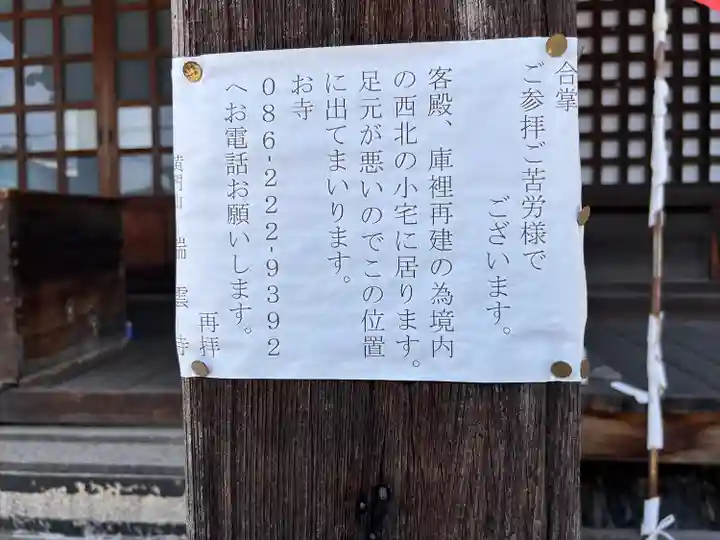 合掌
ご参拝ご苦労様で
ございます。
客殿、庫裡再建の為境内
の西北の小宅に居ります。
足元が悪いのでこの位置
に出てまいります。
お寺
086-222-9392
へお電話お願いします。
再拝
瑞雲寺